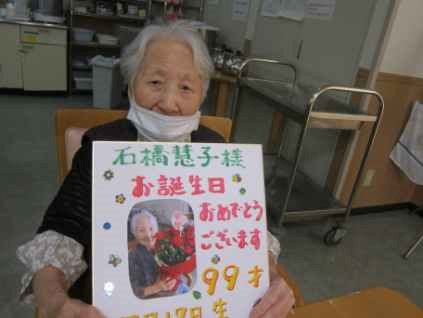 石橋慧子様
お誕生日
おめでとう
ございます
99才
17日生